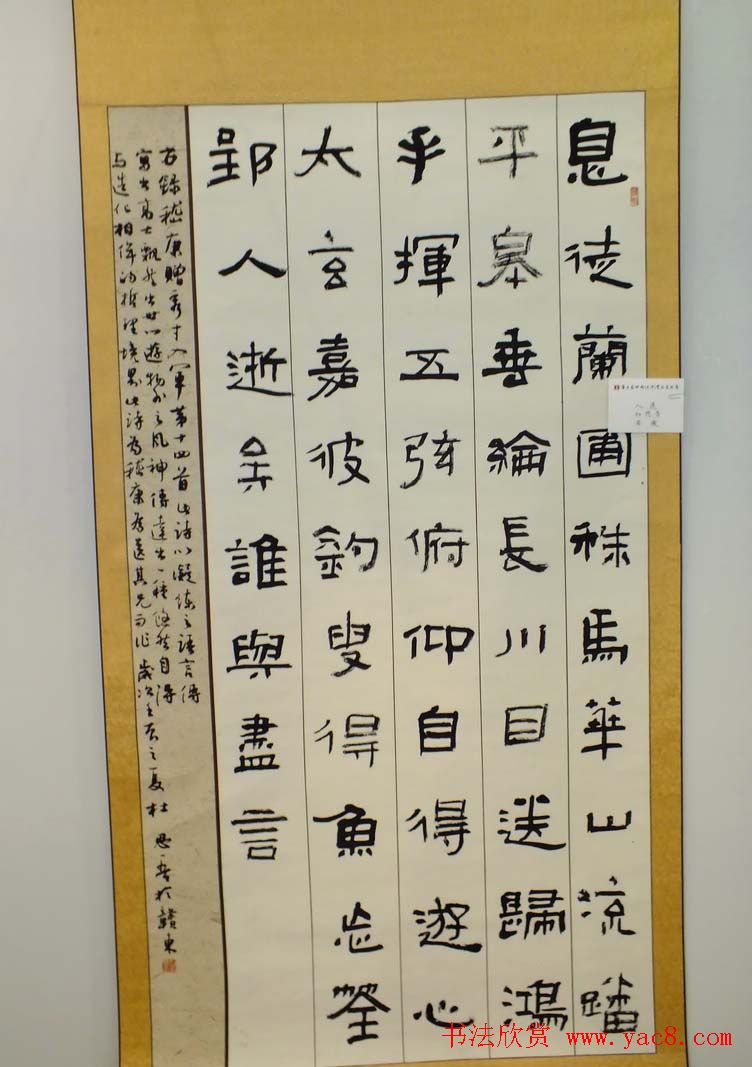 息徒蘭圃秣馬華山流蹯
平皋垂綸長川目送歸鴻
手揮五弦俯仰自得遊心
太玄嘉彼釣叟得魚忘筌
郢人逝矣誰與盡言
右錄嵇康贈秀才入軍第十四首此詩以凝练之語言傳
寫出高士飘然出世心遊物外之風神傳達出一種悠然自得
与造化相侔的哲理境界此詩為嵇康為送其兄而作歲次壬辰之夏杜於贛東
书法欣赏 www.yac8.com